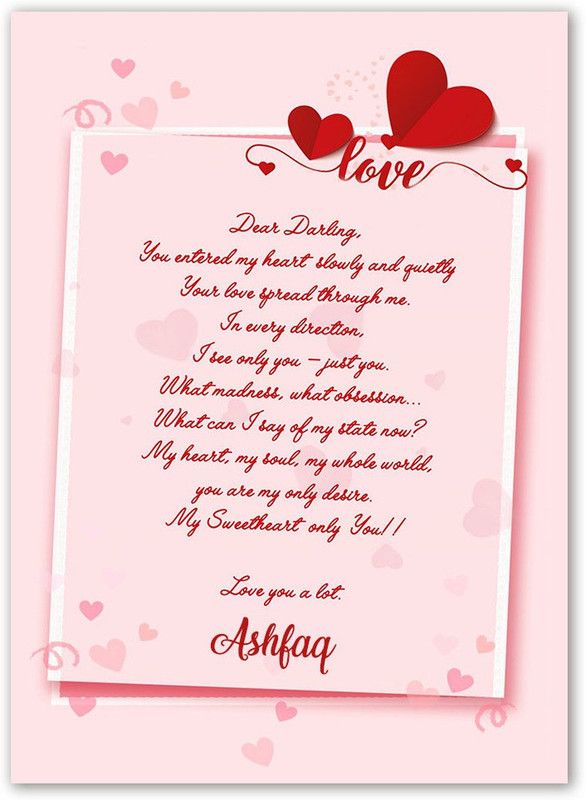 love
Dear Darling,
You entered my heart slowly and quietly
Your love spread through me.
In every direction,
I see only you – just you.
What madness, what obsession...
What can I say of my state now?
My heart, my soul, my whole world,
you are my only desire.
My Sweetheart only You!!
Love you a lot.
Ashfaq